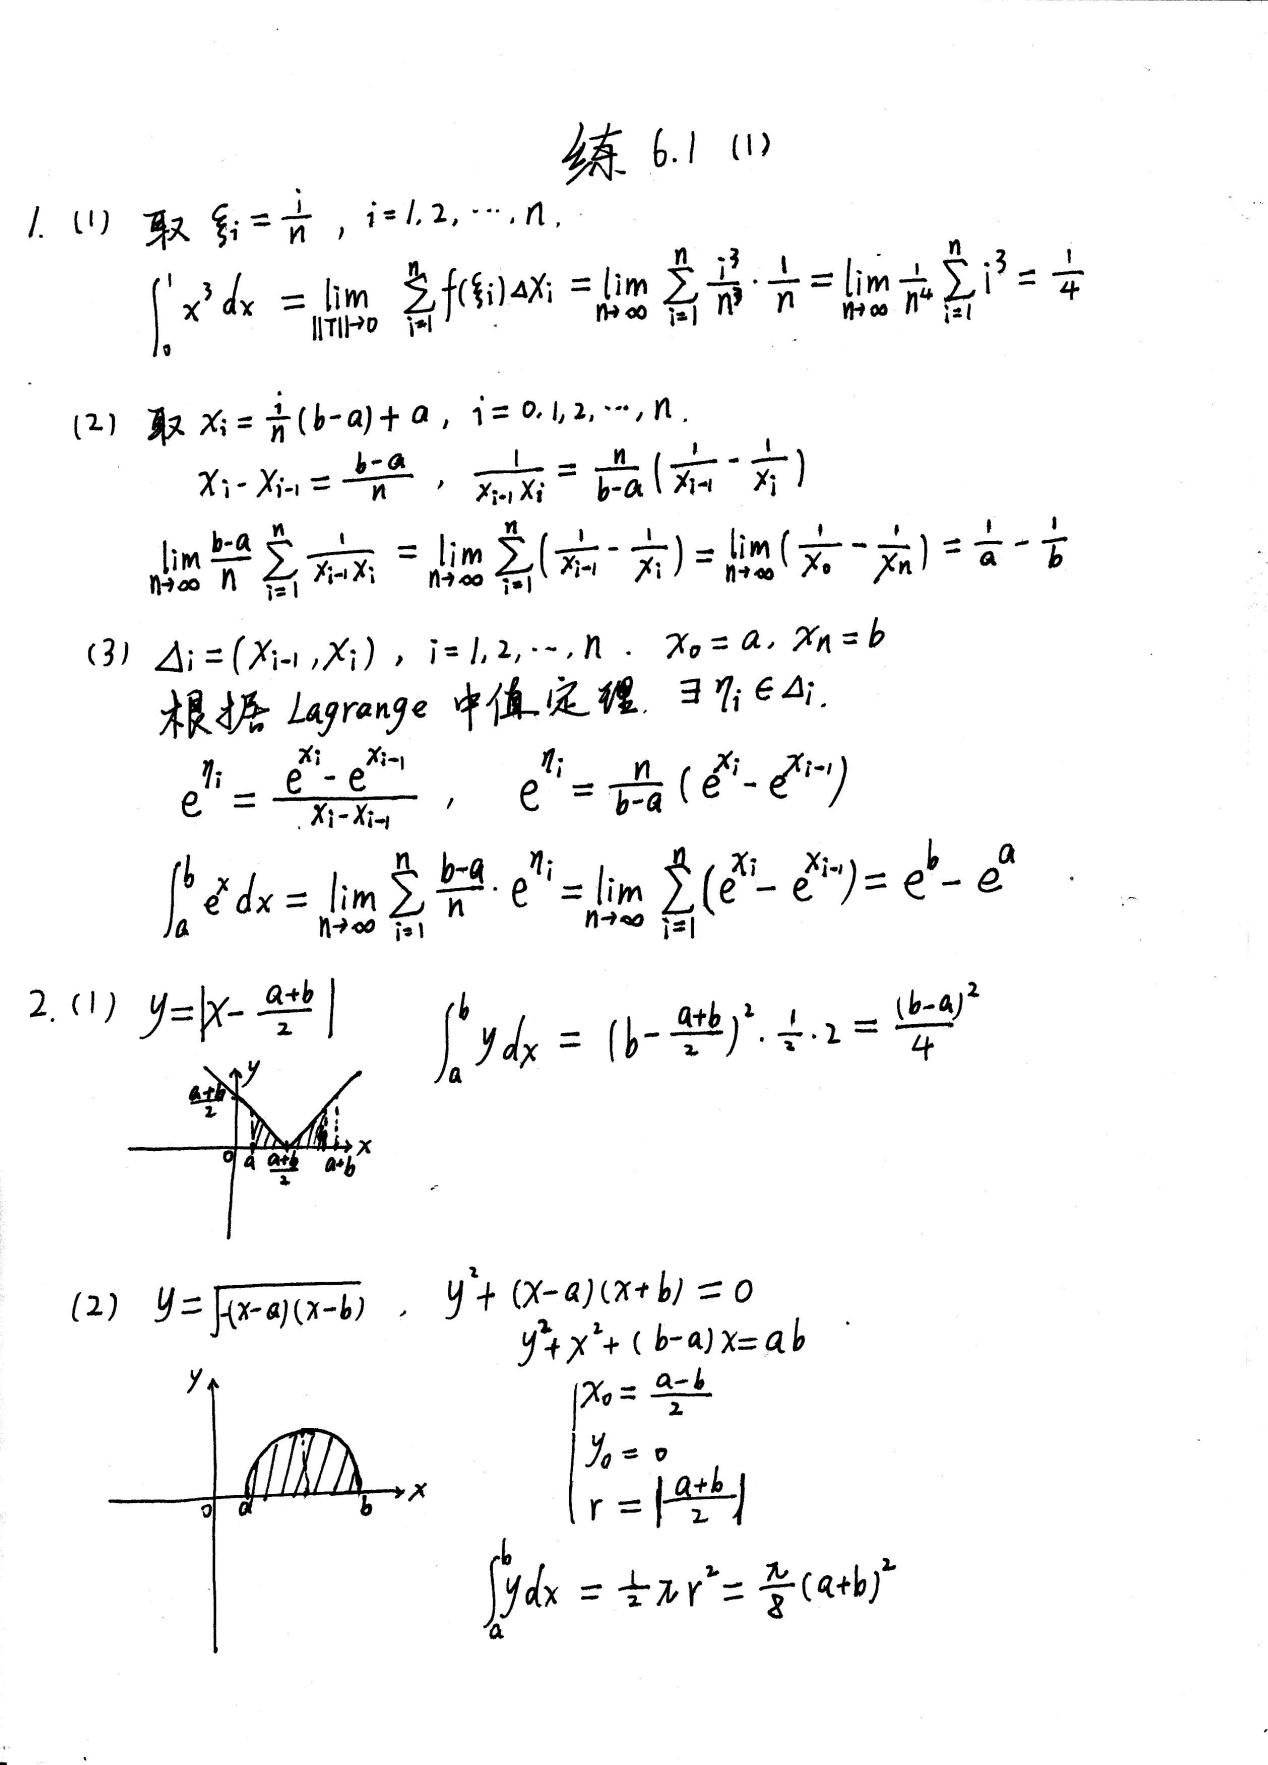 练 6.1 (1)
1. (1) 取 ξi = i/n , i = 1, 2, ⋯, n.
∫₀¹ x³ dx = lim_{||T||→0} Σ_{i=1}^{n} f(ξi)Δxi = lim_{n→∞} Σ_{i=1}^{n} i³/n³ · 1/n = lim_{n→∞} 1/n⁴ Σ_{i=1}^{n} i³ = 1/4
(2) 取 xi = i/n (b-a) + a, i = 0, 1, 2, ⋯, n.
xi - x_{i-1} = (b-a)/n , 1/(x_{i-1} xi) = n/(b-a) (1/x_{i-1} - 1/xi)
lim_{n→∞} (b-a)/n Σ_{i=1}^{n} 1/(x_{i-1} xi) = lim_{n→∞} Σ_{i=1}^{n} (1/x_{i-1} - 1/xi) = lim_{n→∞} (1/x₀ - 1/xn) = 1/a - 1/b
(3) Δi = (x_{i-1}, xi), i = 1, 2, ⋯, n. x₀ = a, xn = b
根据 Lagrange 中值定理. ∃ ηi ∈ Δi.
e^{ηi} = (e^{xi} - e^{x_{i-1}})/(xi - x_{i-1}) , e^{ηi} = n/(b-a) (e^{xi} - e^{x_{i-1}})
∫_a^b e^x dx = lim_{n→∞} Σ_{i=1}^{n} (b-a)/n · e^{ηi} = lim_{n→∞} Σ_{i=1}^{n} (e^{xi} - e^{x_{i-1}}) = e^b - e^a
2. (1) y = |x - (a+b)/2| ∫_a^b y dx = (b - (a+b)/2)² · 1/2 · 2 = (b-a)²/4
y
(a+b)/2
0 a (a+b)/2 a+b x
(2) y = √(-(x-a)(x-b)) , y² + (x-a)(x+b) = 0
y² + x² + (b-a)x = ab
x₀ = (a-b)/2
y₀ = 0
r = |(a+b)/2|
y
0 a b x
∫_a^b y dx = 1/2 π r² = π/8 (a+b)²